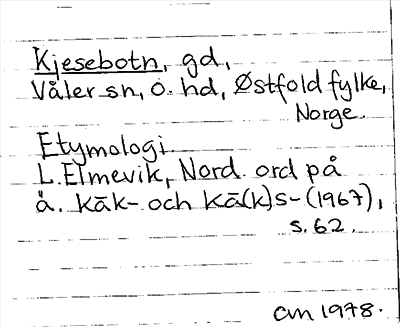 Kjesebotn, gd,
Våler sn, Ö. hd, Østfold fylke,
Norge.
Etymologi.
L. Elmevik, Nord. ord på
ä. kāk- och kā(k)s- (1967),
s. 62.
CM 1978.